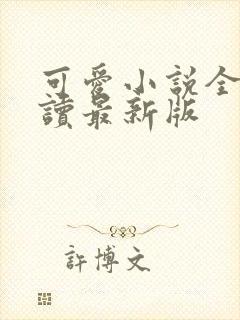 可愛小説全
讀最新版
許博文